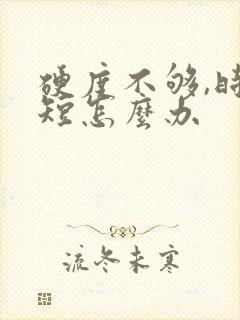 硬度不够,时
短怎麼办
流冬未寒